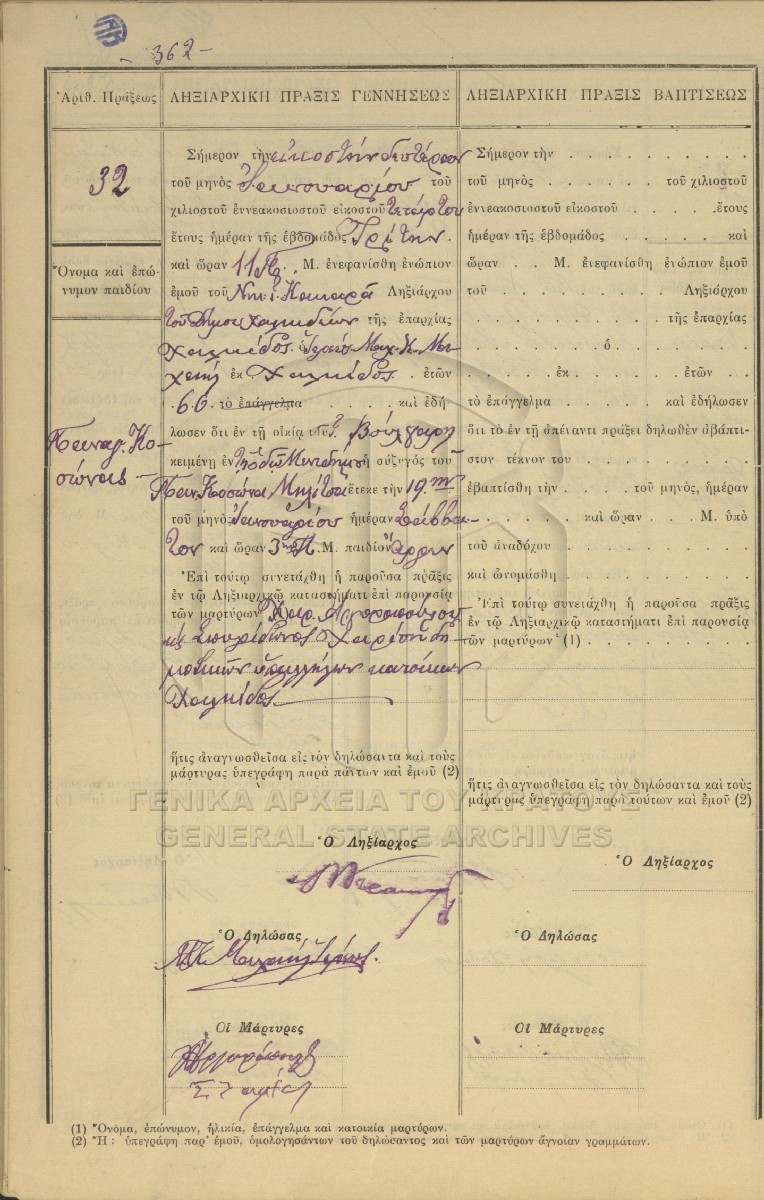 - 362 -
Ἀριθ. Πράξεως
32
Ὄνομα καὶ ἐπώ-
νυμον παιδίου
Παναγ. Κο-
σώνας
ΛΗΞΙΑΡΧΙΚΗ ΠΡΑΞΙΣ ΓΕΝΝΗΣΕΩΣ
Σήμερον τὴν εἰκοστὴν δευτέραν
τοῦ μηνὸς Ἰανουαρίου τοῦ
χιλιοστοῦ ἐννεακοσιοστοῦ εἰκοστοῦ τετάρτου
ἔτους ἡμέραν τῆς ἑβδομάδος Τρίτην.
καὶ ὥραν 11 Π. Μ. ἐνεφανίσθη ἐνώπιον
ἐμοῦ τοῦ Ληξιάρχου
τοῦ Δήμου Χαλκιδέων τῆς ἐπαρχίας
Χαλκίδος. ὁ Ἰατρὸς Μιχ. Κ. Μι-
χαὴλ ἐκ Χαλκίδος. ἐτῶν
60 τὸ ἐπάγγελμα καὶ ἐδή
λωσεν ὅτι ἐν τῇ οἰκίᾳ τοῦ
κειμένῃ ἐν ὁδῷ ἡ σύζυγός τοῦ
Παν. Κοσώνα ἔτεκε τὴν 19ην
τοῦ μηνὸς Ἰανουαρίου ἡμέραν Σάββα-
τον καὶ ὥραν 3ην Π. Μ. παιδίον ἄρρεν
Ἐπὶ τούτῳ συνετάχθη ἡ παροῦσα πρᾶξις
ἐν τῷ Ληξιαρχικῷ καταστήματι ἐπὶ παρουσίᾳ
τῶν μαρτύρων (1)
κ Σπυρίδωνος δη-
μοτικῶν ὑπαλλήλων κατοίκων
Χαλκίδος
ἥτις ἀναγνωσθεῖσα εἰς τὸν δηλώσαντα καὶ τοὺς
μάρτυρας ὑπεγράφη παρὰ πάντων καὶ ἐμοῦ (2)
Ὁ Ληξίαρχος
Ὁ Δηλώσας
Οἱ Μάρτυρες
ΛΗΞΙΑΡΧΙΚΗ ΠΡΑΞΙΣ ΒΑΠΤΙΣΕΩΣ
Σήμερον τὴν . . . . . . . . . .
τοῦ μηνὸς . . . . . . τοῦ χιλιοστοῦ
ἐννεακοσιοστοῦ εἰκοστοῦ . . . . . . .ἔτους
ἡμέραν τῆς ἑβδομάδος . . . . . καὶ
ὥραν . . Μ. ἐνεφανίσθη ἐνώπιον ἐμοῦ
τοῦ . . . . . . . . . Ληξιάρχου
. . . . . . . . . .τῆς ἐπαρχίας
. . . . . . . ὁ . . . . . . .
. . . . . ἐκ . . . . . . ἐτῶν . .
τὸ ἐπάγγελμα . . . . . καὶ ἐδήλωσεν
ὅτι τὸ ἐν τῇ ἀπέναντι πράξει δηλωθὲν ἀβάπτι-
στον τέκνον του . . . . . . . . .
ἐβαπτίσθη τὴν . . . . τοῦ μηνός, ἡμέραν
. . . . . . καὶ ὥραν . . . Μ. ὑπὸ
τοῦ ἀναδόχου . . . . . . . . . .
καὶ ὠνομάσθη . . . . . . . . . .
Ἐπὶ τούτῳ συνετάχθη ἡ παροῦσα πρᾶξις
ἐν τῷ Ληξιαρχικῷ καταστήματι ἐπὶ παρουσίᾳ
τῶν μαρτύρων (1) . . . . . . . . .
ἥτις ἀναγνωσθεῖσα εἰς τὸν δηλώσαντα καὶ τοὺς
μάρτυρας ὑπεγράφη παρὰ τούτων καὶ ἐμοῦ (2)
Ὁ Ληξίαρχος
Ὁ Δηλώσας
Οἱ Μάρτυρες
ΓΕΝΙΚΑ ΑΡΧΕΙΑ ΤΟΥ ΚΡΑΤΟΥΣ
GENERAL STATE ARCHIVES
(1) Ὄνομα, ἐπώνυμον, ἡλικία, ἐπάγγελμα καὶ κατοικία μαρτύρων.
(2) Ἢ: ὑπεγράφη παρ' ἐμοῦ, ὁμολογησάντων τοῦ δηλώσαντος καὶ τῶν μαρτύρων ἄγνοιαν γραμμάτων.